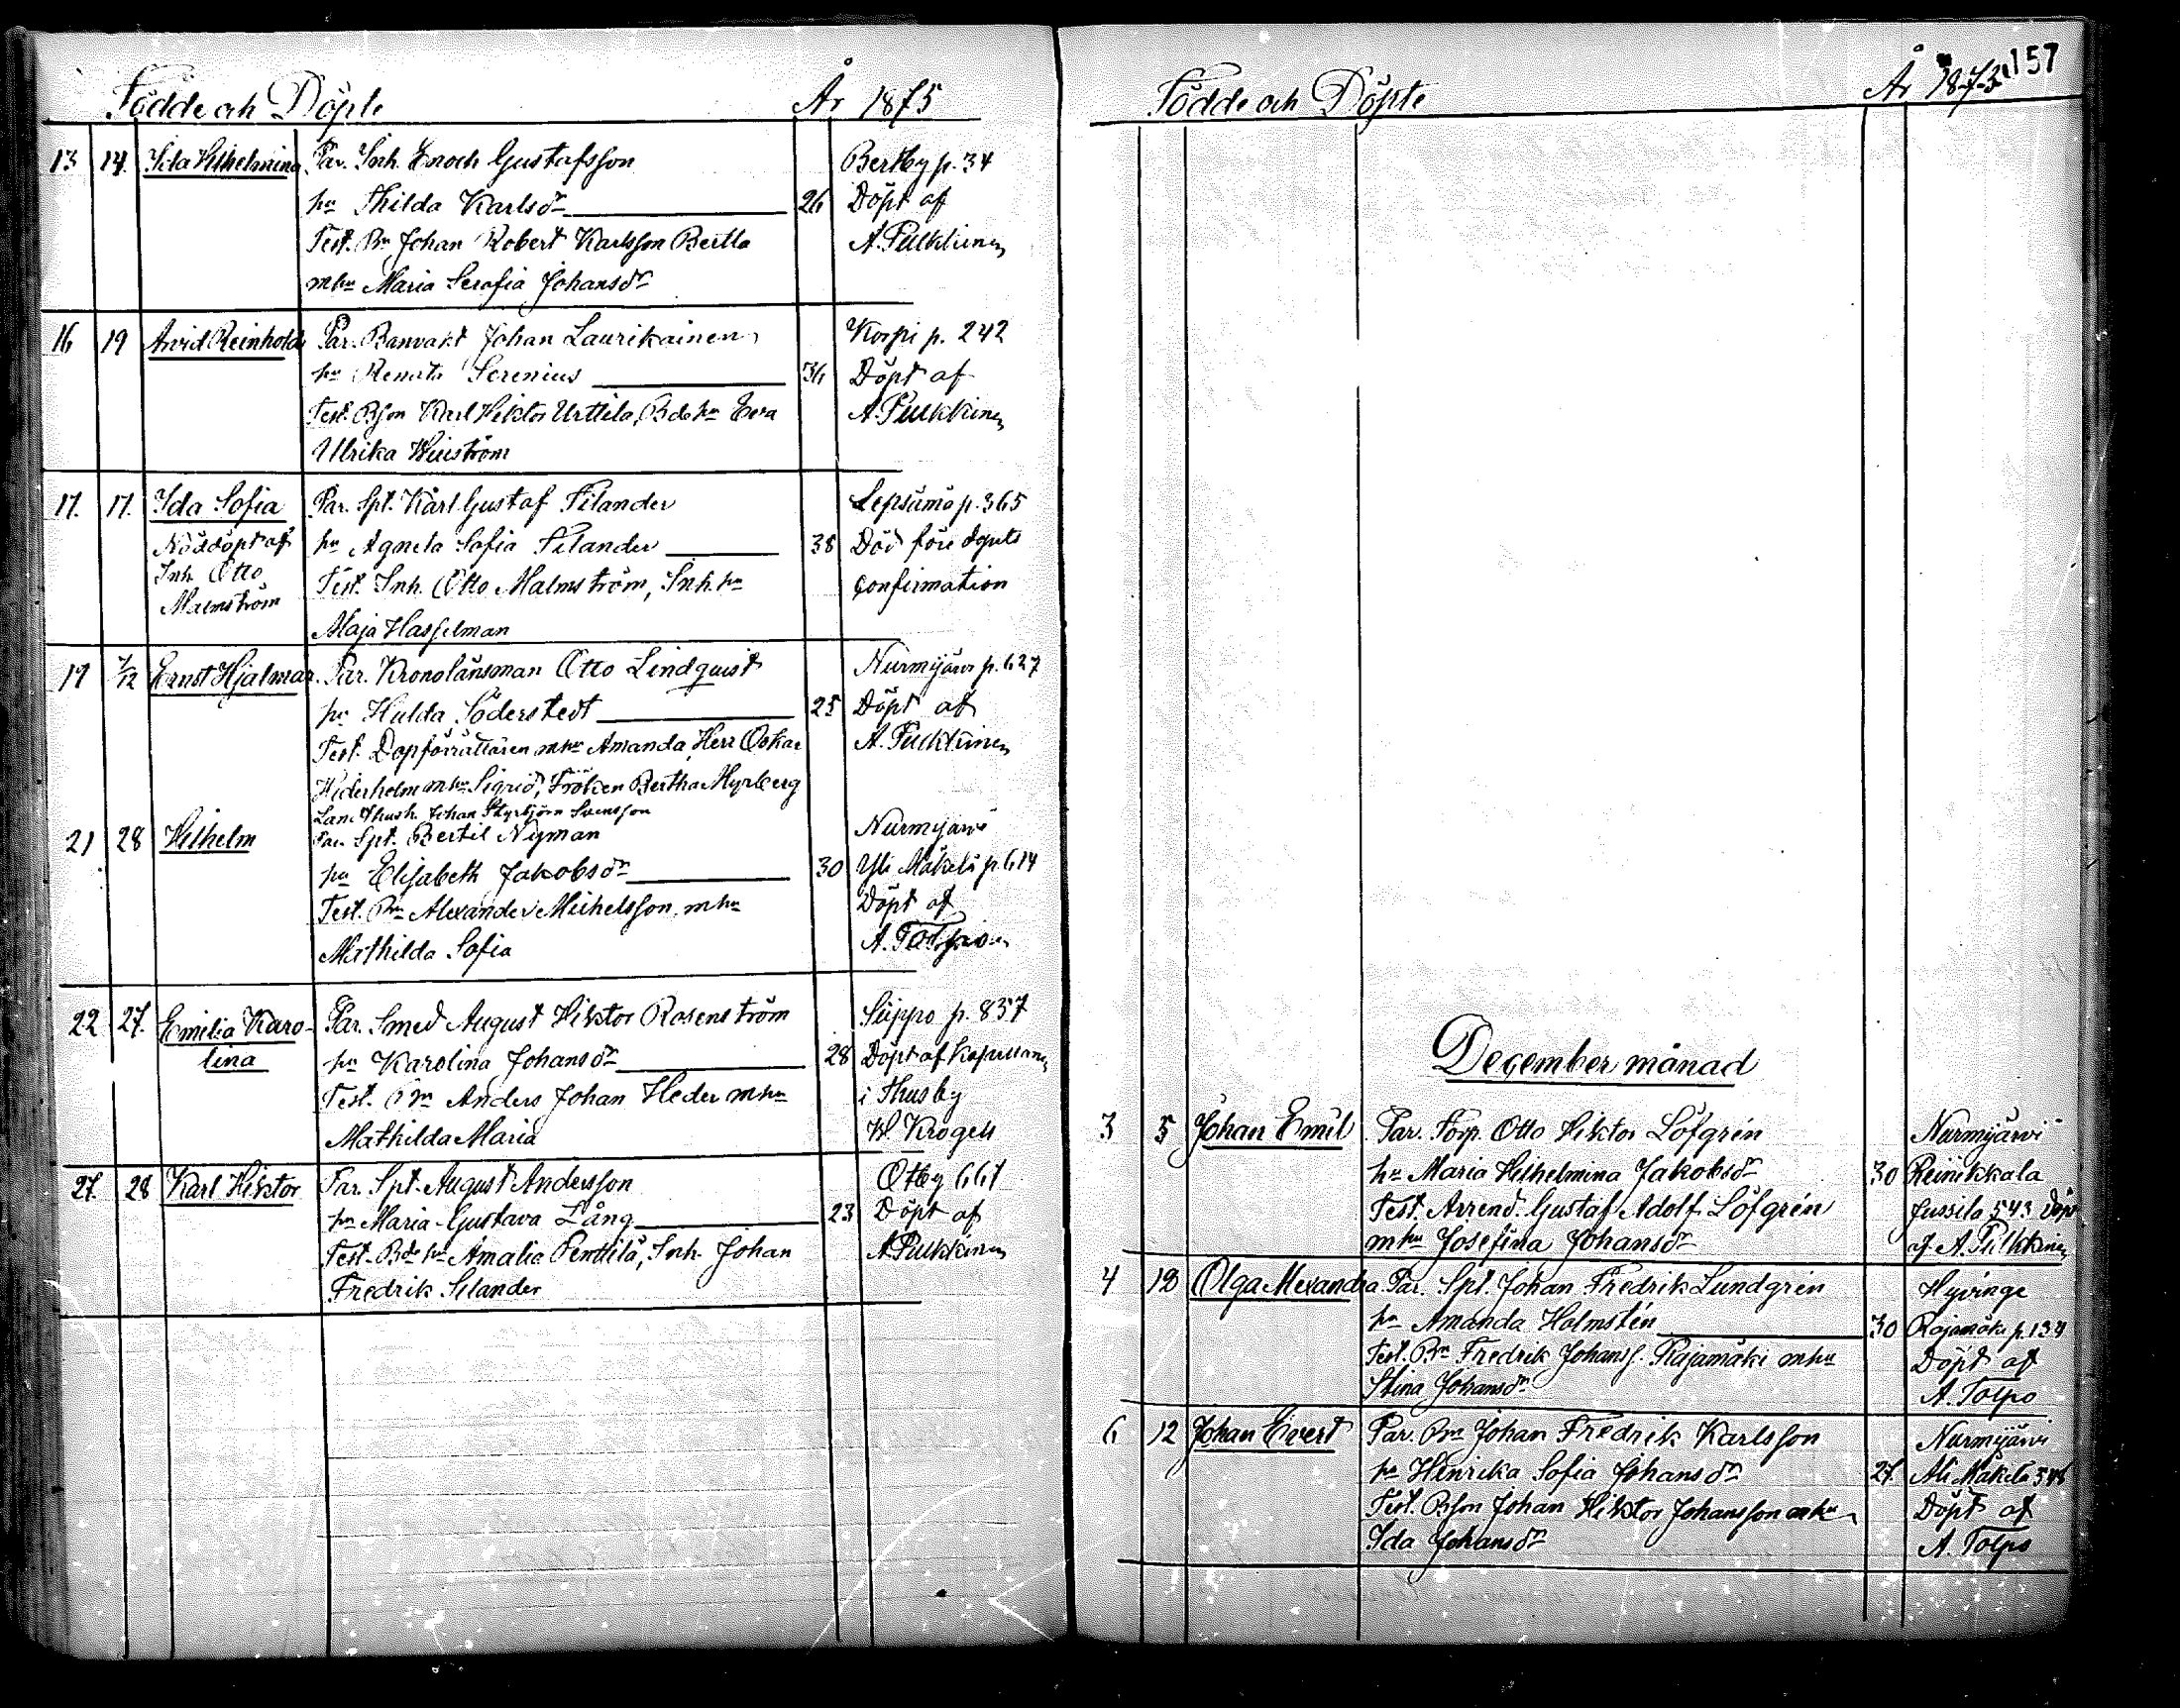 Födde och Döpte År 1875
13 14. Ida Wilhelmina Par. Inh. Enoch Gustafsson Bertby p. 34
hu Thilda Karlsdr 26 Döpt af
Test. Bn Johan Robert Karlsson Bertla A. Pulkkinen
mhu Maria Serafia Johansdr
16 19 Arvid Reinhold Par. Banvakt Johan Laurikainen Korpi p. 242
hu Renata Serenius 36 Döpt af
Test. Bson Karl Wiktor Urttila, Bde hu Eva A. Pulkkinen
Ulrika Winström
17. 17. Ida Sofia Par. Spt. Karl Gustaf Silander Lepsämä p. 365
Nöddöpt af hu Agneta Sofia Silander 38 Död före dopets
Inh. Otto Test. Inh. Otto Malmström, Inh. hu confirmation
Malmström
Maja Hasselman
19 7/12 Ernst Hjalmar Par. Kronolänsman Otto Lindquist Nurmijärvi p. 627
hu Hulda Söderstedt 25 Döpt af
Test. Dopförrättaren mhu Amanda, Herr Oskar A. Pulkkinen
Widerholm mhu Sigrid, Fröken Bertha Myrberg
Johan Styrbjörn Svensson
21 28 Wilhelm Par. Spt. Bertil Nyman Nurmijärvi
hu Elisabeth Jakobsdr 30 Yli Mäkelä p. 614
Test. Bn Alexander Michelsson mhu Döpt af
Mathilda Sofia A. Tolpo
22 27. Emilia Karo- Par. Smed August Wiktor Rosenström Siippo p. 837
lina hu Karolina Johansdr 28 Döpt af kapellanen
Test. Bn Anders Johan Heder mhu i Thusby
Mathilda Maria W. Krogell
27. 28 Karl Wiktor Par. Spt. August Andersson Otby 661
hu Maria Gustava Lång 23 Döpt af
Test. Bde hu Amalia Penttilä, Inh. Johan A. Pulkkinen
Fredrik Silander
157
Födde och Döpte År 1875
December månad
3 5 Johan Emil Par. Torp. Otto Wiktor Löfgrén Nurmijärvi
hu Maria Wilhelmina Jakobsdr 30 Reinikkala
Test. Arrend. Gustaf Adolf Löfgrén Jussila 543 Döpt
mhu Josefina Johansdr af A. Pulkkinen
4 18 Olga Alexandra Par. Spt. Johan Fredrik Lundgrén Hyvinge
hu Amanda Holmstén 30 Rajamäki p. 134
Test. Bn Fredrik Johanss. Rajamäki mhu Döpt af
Stina Johansdr A. Tolpo
6 12 Johan Evert Par. Bn Johan Fredrik Karlsson Nurmijärvi
hu Henrika Sofia Johansdr 27. Ali Mäkelä
Test. Bson Johan Wiktor Johansson mhu Döpt af
Ida Johansdr A. Tolpo